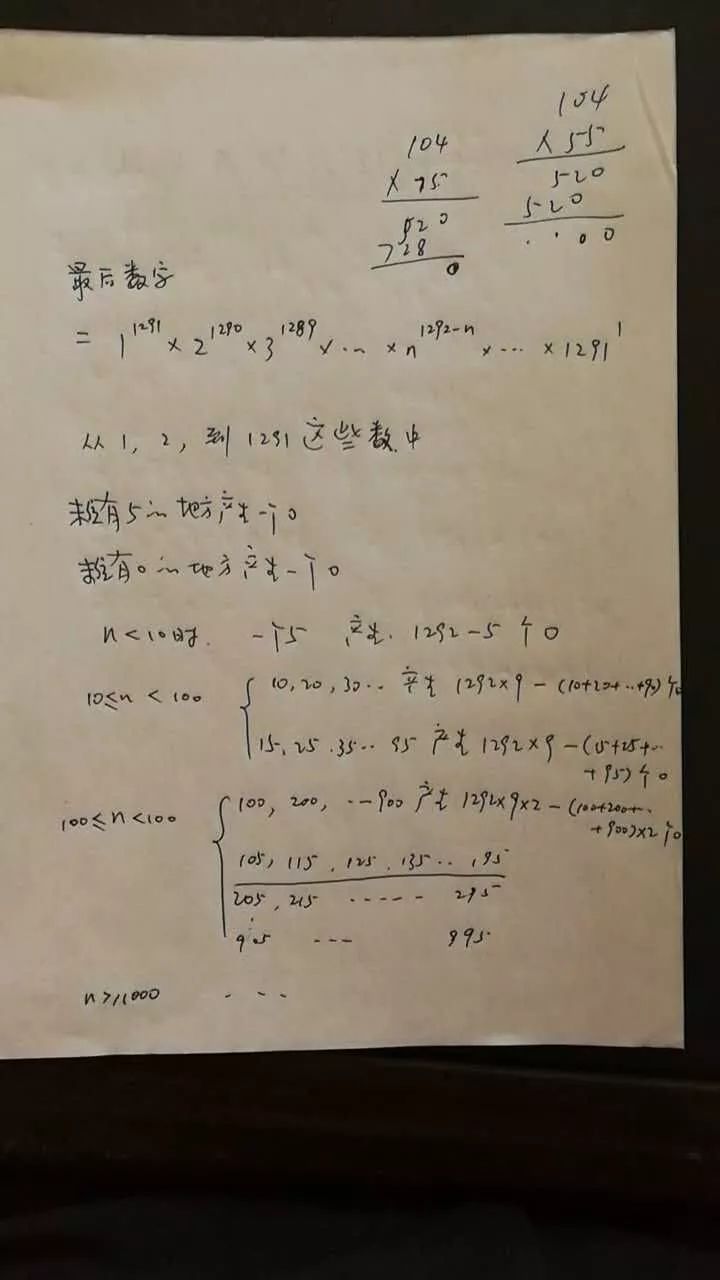 104
× 75
520
728
0
104
× 55
520
520
..00
最后数字
= 1^1291 × 2^1290 × 3^1289 × … × n^1292-n × … × 1291^1
从 1, 2, 到 1291 这些数中
有5的地方产生一个0
有0的地方产生一个0
n < 10时. 一个5 产生. 1292-5 个0
10≤n < 100
10, 20, 30… 产生 1292×9 - (10+20+…+90)个0
15, 25. 35… 95 产生 1292×9 - (15+25+…+95)个0
100≤n<100
100, 200, …900 产生 1292×9×2 - (100+200+…+900)×2个0
105, 115, 125, 135… 195
205, 215 …… 295
905 … 995
n≥1000 …